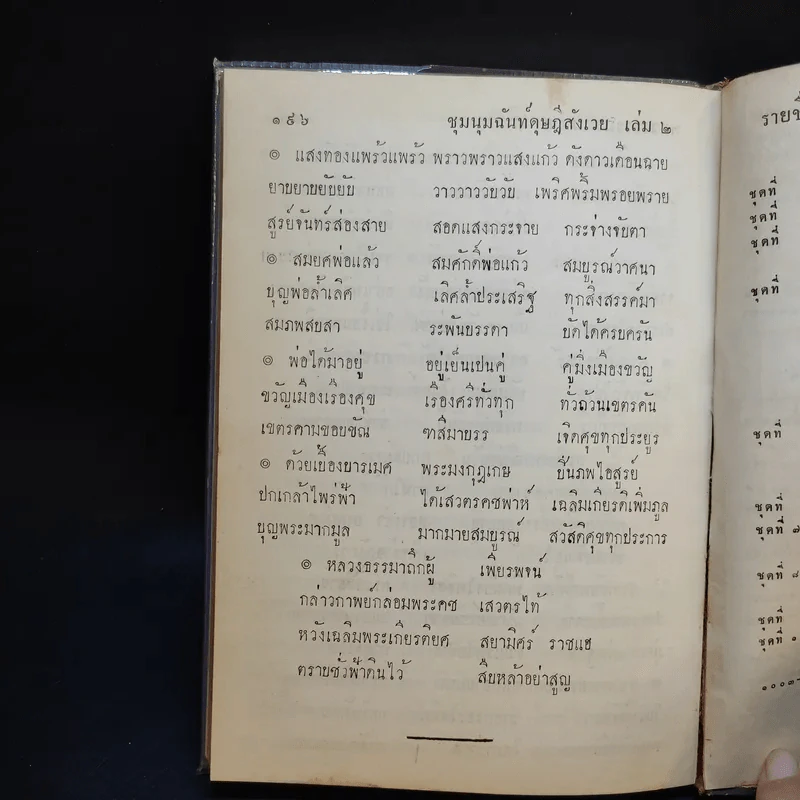 ๑๙๖ ชุมนุมฉันท์ดุษฎีสังเวย เล่ม ๒
๏ แสงทองแพร้วแพร้ว พราวพราวแสงแก้ว ดังดาวเดือนฉาย
ยาบยาบยับยับ วาววาววับวับ เพริศพริ้มพรอยพราย
สูรย์จันทร์ส่องสาย สอดแสงกระจาย กระจ่างจับตา
๏ สมยศพ่อแล้ว สมศักดิ์พ่อแก้ว สมบูรณ์วาศนา
บุญพ่อล้ำเลิศ เลิศล้ำประเสริฐ ทุกสิ่งสรรค์มา
สมภพสบสา ระพันบรรดา บัดได้ครบครัน
๏ พ่อได้มาอยู่ อยู่เย็นเปนคู่ คู่มิ่งเมืองขวัญ
ขวัญเมืองเรืองศุข เรืองศรีทั่วทุก ทั่วถ้วนเขตรคัน
เขตรคามขอบขัณ ฑสีมาบรร เจิดศุขทุกประยูร
๏ ด้วยเบื้องบารเมศ พระมงกุฎเกษ ปิ่นภพไอสูรย์
ปกเกล้าไพร่ฟ้า ได้เสวตรคชพ่าห์ เฉลิมเกียรติเพิ่มภูล
บุญพระมากมูล มากมายสมบูรณ์ สวัสดิศุขทุกประการ
๏ หลวงธรรมาถึกผู้ เพียรพจน์
กล่าวกาพย์กล่อมพระคช เสวตรไท้
หวังเฉลิมพระเกียรติยศ สยามิศร์ ราชแฮ
ตราบชั่วฟ้าดินไว้ สืบหล้าอย่าสูญ
ชุดที่
ชุดที่
ชุดที่
ชุดที่
ชุดที่
ชุดที่
ชุดที่
ชุดที่ ๘
ชุดที่
ชุดที่